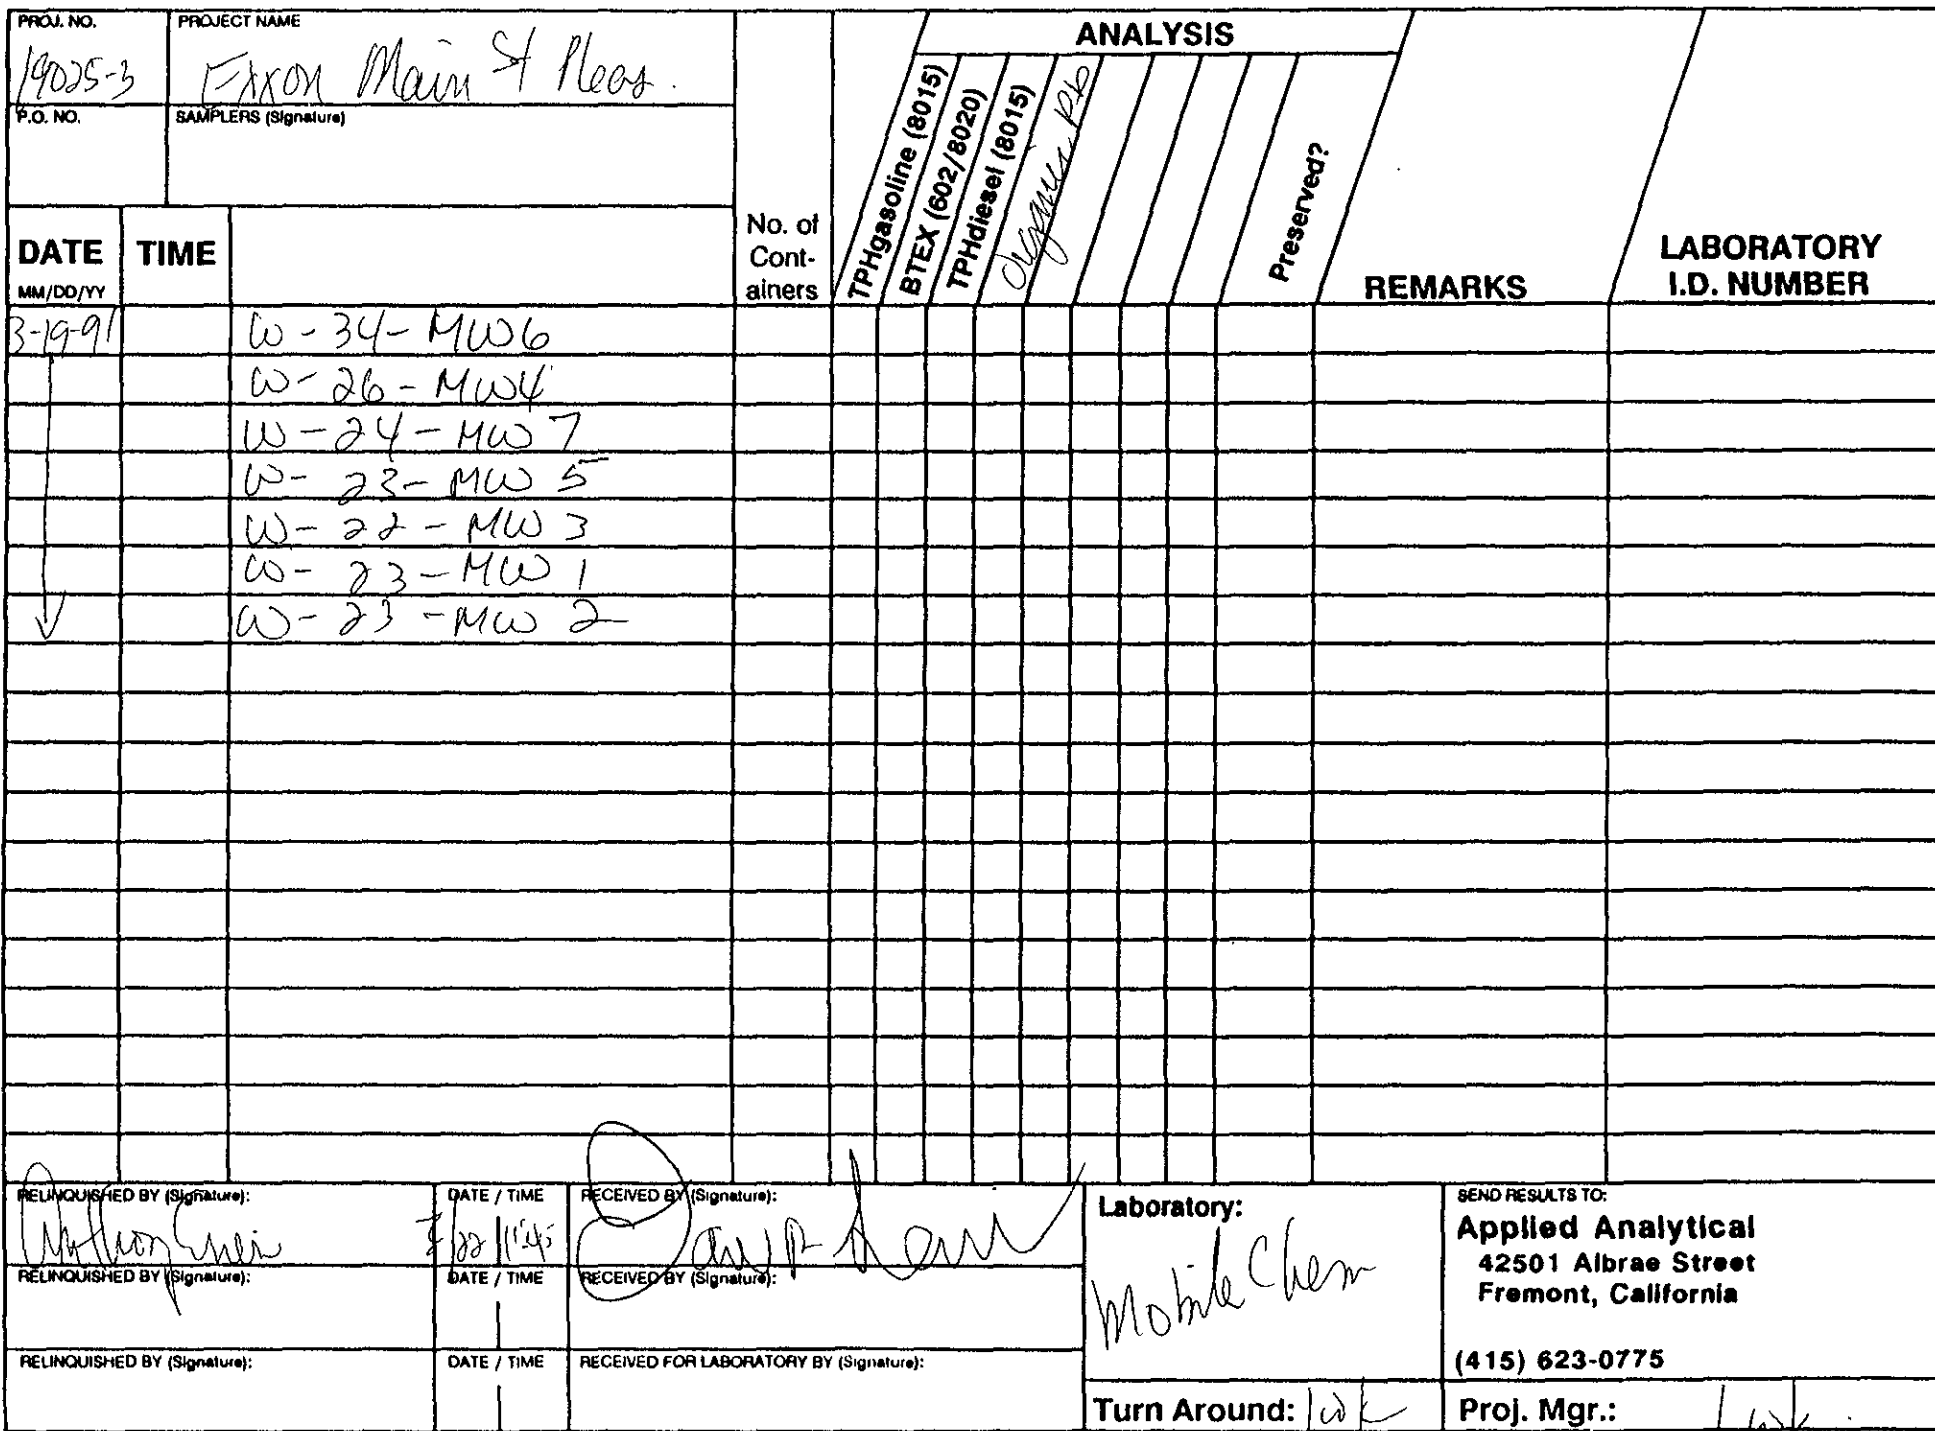 PROJ. NO.
19025-3
PROJECT NAME
Exxon Main St Pleas.
P.O. NO.
SAMPLERS (Signature)
ANALYSIS
No. of
Cont-
ainers
TPHgasoline (8015)
BTEX (602/8020)
TPHdiesel (8015)
Organic Pb
Preserved?
REMARKS
LABORATORY
I.D. NUMBER
DATE
MM/DD/YY
TIME
3-19-91 W-34-MW6
W-26-MW4
W-24-MW7
W-23-MW5
W-22-MW3
W-23-MW1
W-23-MW2
RELINQUISHED BY (Signature):
DATE / TIME
RECEIVED BY (Signature):
RELINQUISHED BY (Signature):
DATE / TIME
RECEIVED BY (Signature):
RELINQUISHED BY (Signature):
DATE / TIME
RECEIVED FOR LABORATORY BY (Signature):
Laboratory:
Mobile Chem
Turn Around: 1 wk
SEND RESULTS TO:
Applied Analytical
42501 Albrae Street
Fremont, California
(415) 623-0775
Proj. Mgr.: